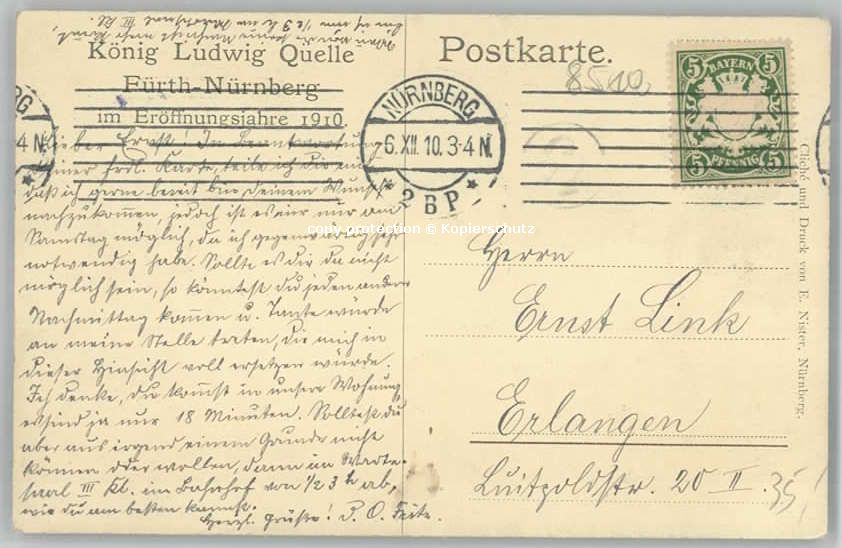 König Ludwig Quelle
Fürth-Nürnberg
im Eröffnungsjahre 1910.
Lieber Ernst! In Beantwortung
deiner frdl. Karte, teile ich dir mit,
daß ich gerne bereit bin, Deinem Wunsche
nachzukommen, jedoch ist es mir nur am
Samstag möglich, da ich gegenwärtig sehr
notwendig habe. Sollte es dir da nicht
möglich sein, so könntest du jeden andern
Nachmittag kommen u. Tante würde
an meine Stelle treten, die mich in
dieser Hinsicht voll ersetzen würde.
Ich denke, du kommst in unsere Wohnung,
es sind ja nur 18 Minuten. Solltest du
aber aus irgend einem Grunde nicht
können oder wollen, dann im Warte-
saal III Kl. im Bahnhof von 1/2 3 h ab,
wie du am besten kannst.
Herzl. Grüße!
Postkarte.
8510
NÜRNBERG
6.XII.10.3-4N.
2BP
BAYERN
5 5
5 PFENNIG 5
Herrn
Ernst Link
Erlangen
Luitpoldstr. 20 II.
35,
Cliché und Druck von E. Nister, Nürnberg.
copy protection © Kopierschutz